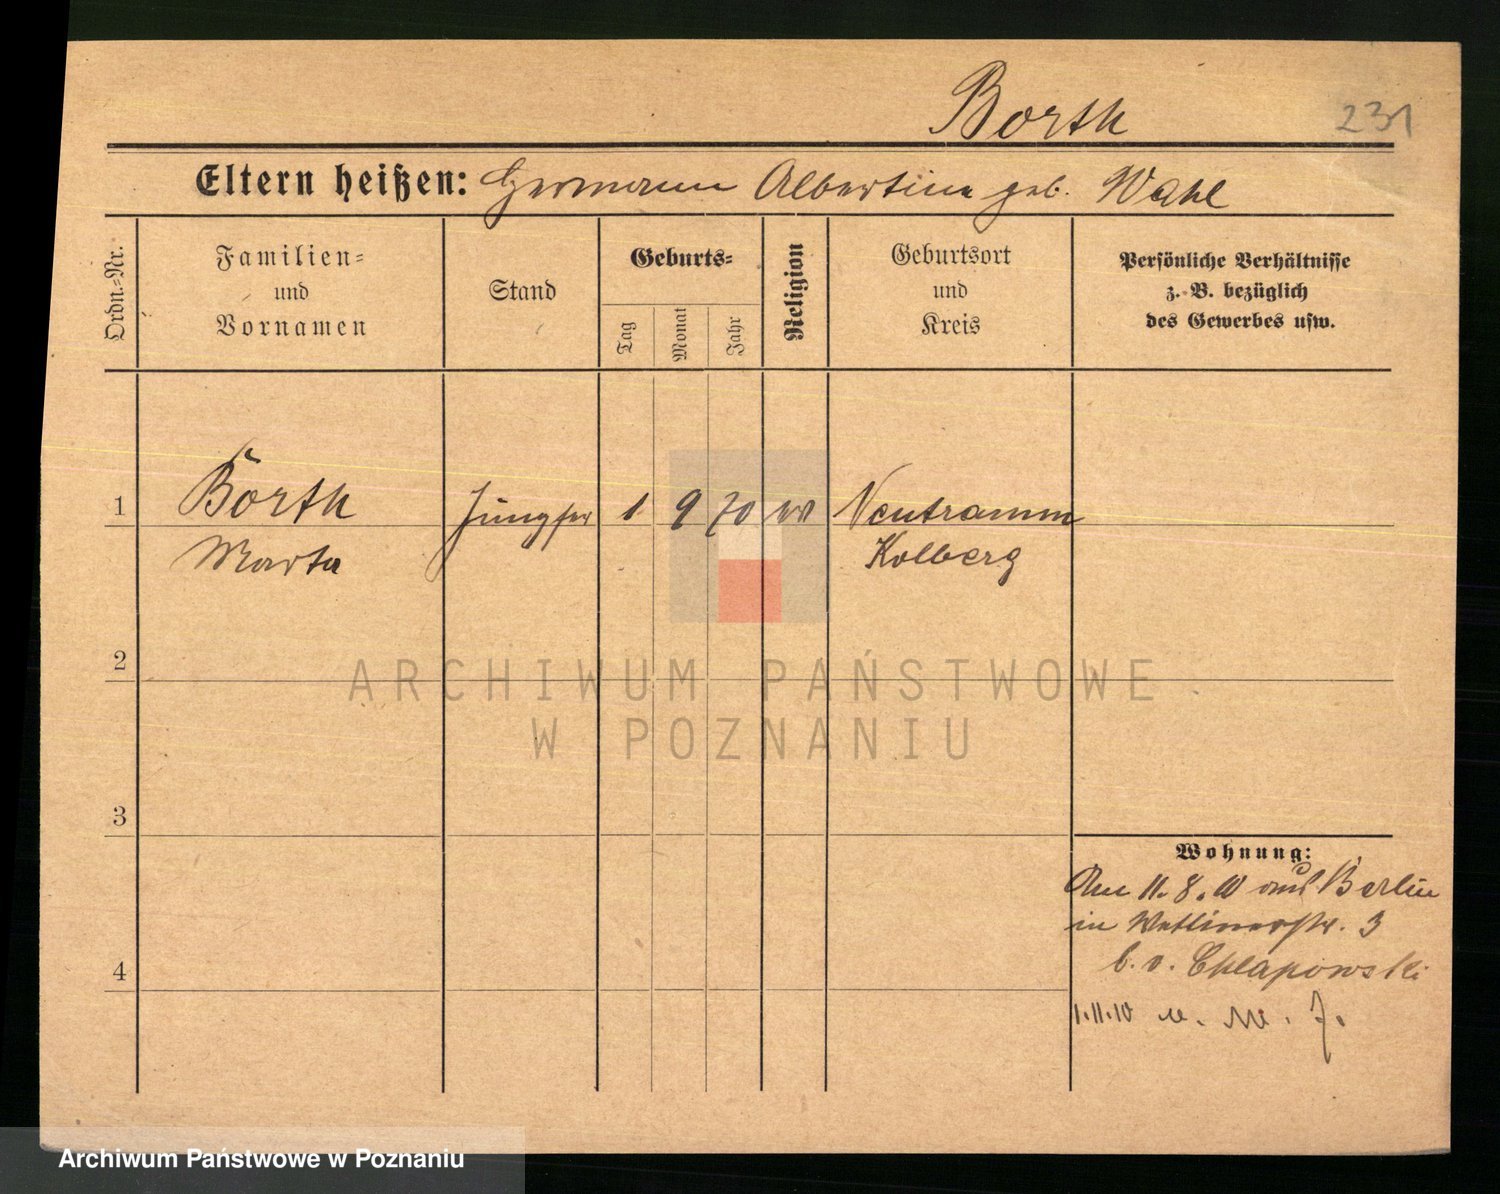 Borth 231
Eltern heißen: Hermann Albertine geb. Wahl
Ordn.-Nr.
Familien-
und
Vornamen
Stand
Geburts-
Tag
Monat
Jahr
Religion
Geburtsort
und
Kreis
Persönliche Verhältnisse
z. B. bezüglich
des Gewerbes usw.
1 Borth Jungfer 1 9 70 ev Neutramm
Marta Kolberg
2
ARCHIWUM PAŃSTWOWE
W POZNANIU
3
Wohnung:
Am 11.8.10 aus Berlin
in 3
b. v. Chlapowski
4
1.11.10 u. m. J.
Archiwum Państwowe w Poznaniu